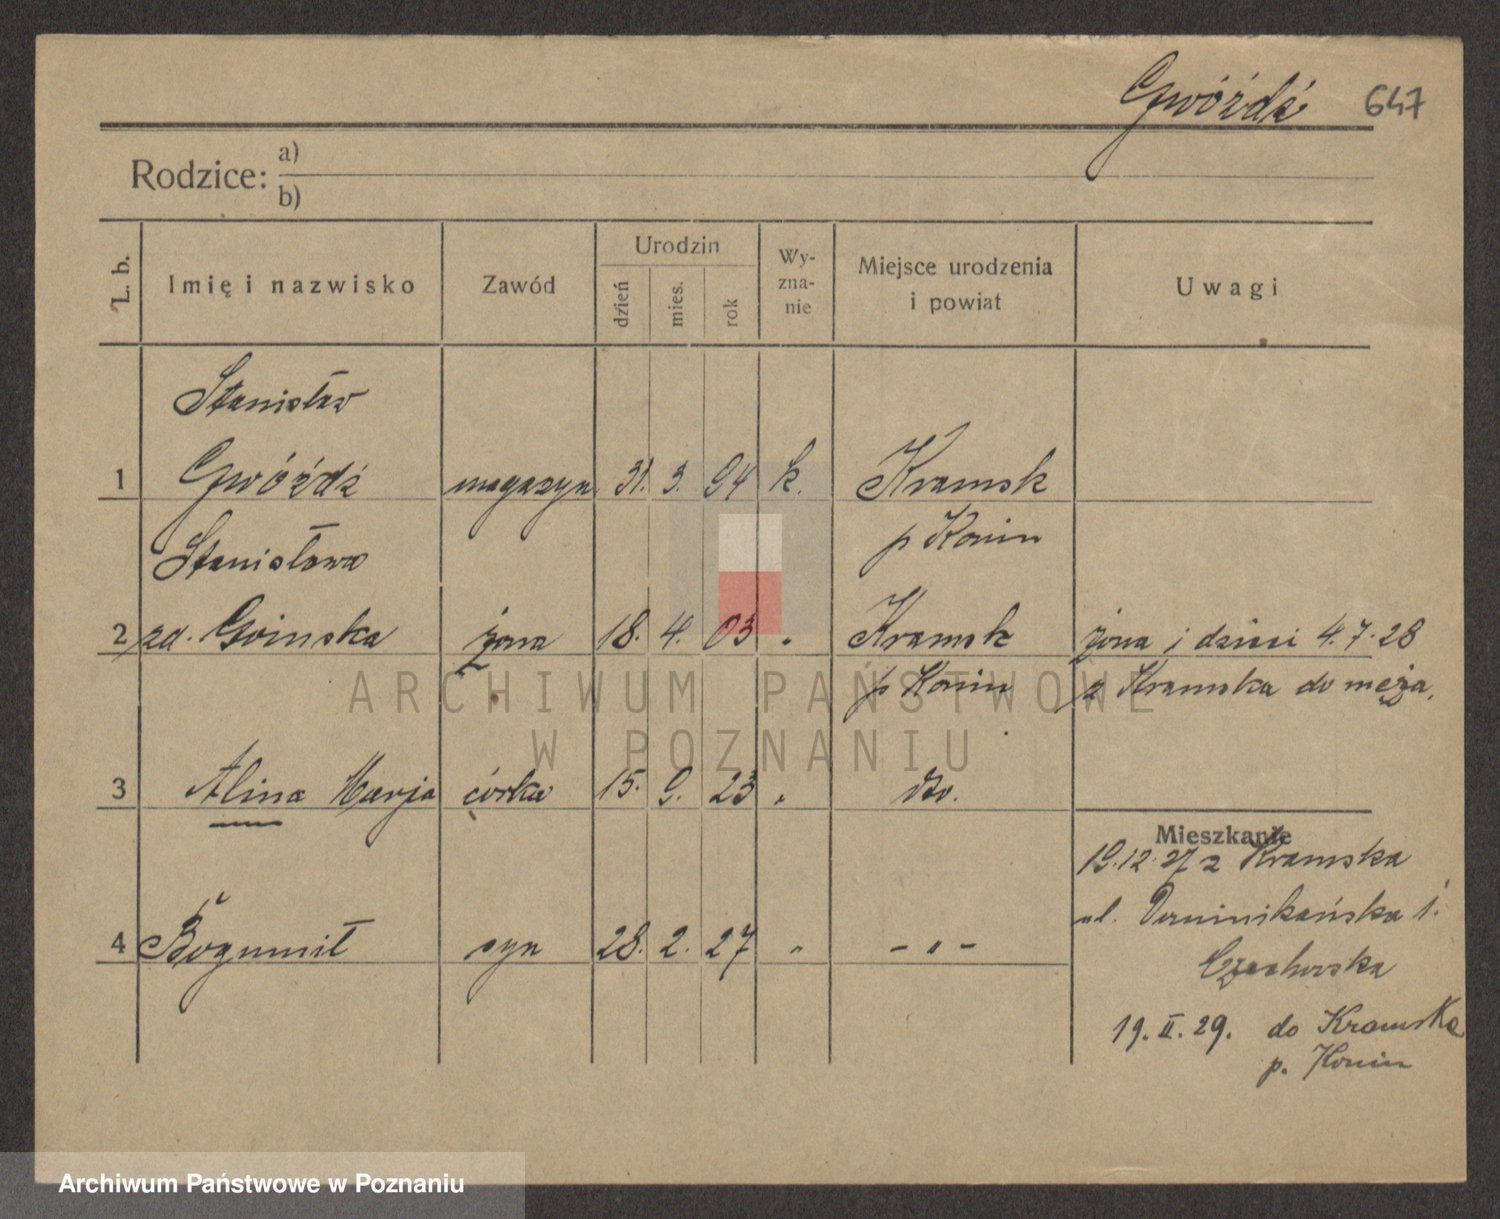 Gwóźdź 647
Rodzice: a)
b)
L. b. Imię i nazwisko Zawód Urodzin dzień mies. rok Wy-zna-nie Miejsce urodzenia i powiat Uwagi
Stanisław
1 Gwóźdź magazyn. 31. 3. 94 k. Kramsk
Stanisława p Konin
2 zd. Goinska żona 18. 4. 03 " Kramsk żona i dzieci 4.7.28
p Konin z Kramska do męża.
ARCHIWUM PAŃSTWOWE
W POZNANIU
3 Alina Marja córka 15. 9. 23 " Do.
Mieszkanie
19.12.27 z Kramska
ul. Dominikańska 1.
4 Bogumił syn 28. 2. 27 " - " -
Czechowska
19. II. 29. do Kramska
p. Konin
Archiwum Państwowe w Poznaniu